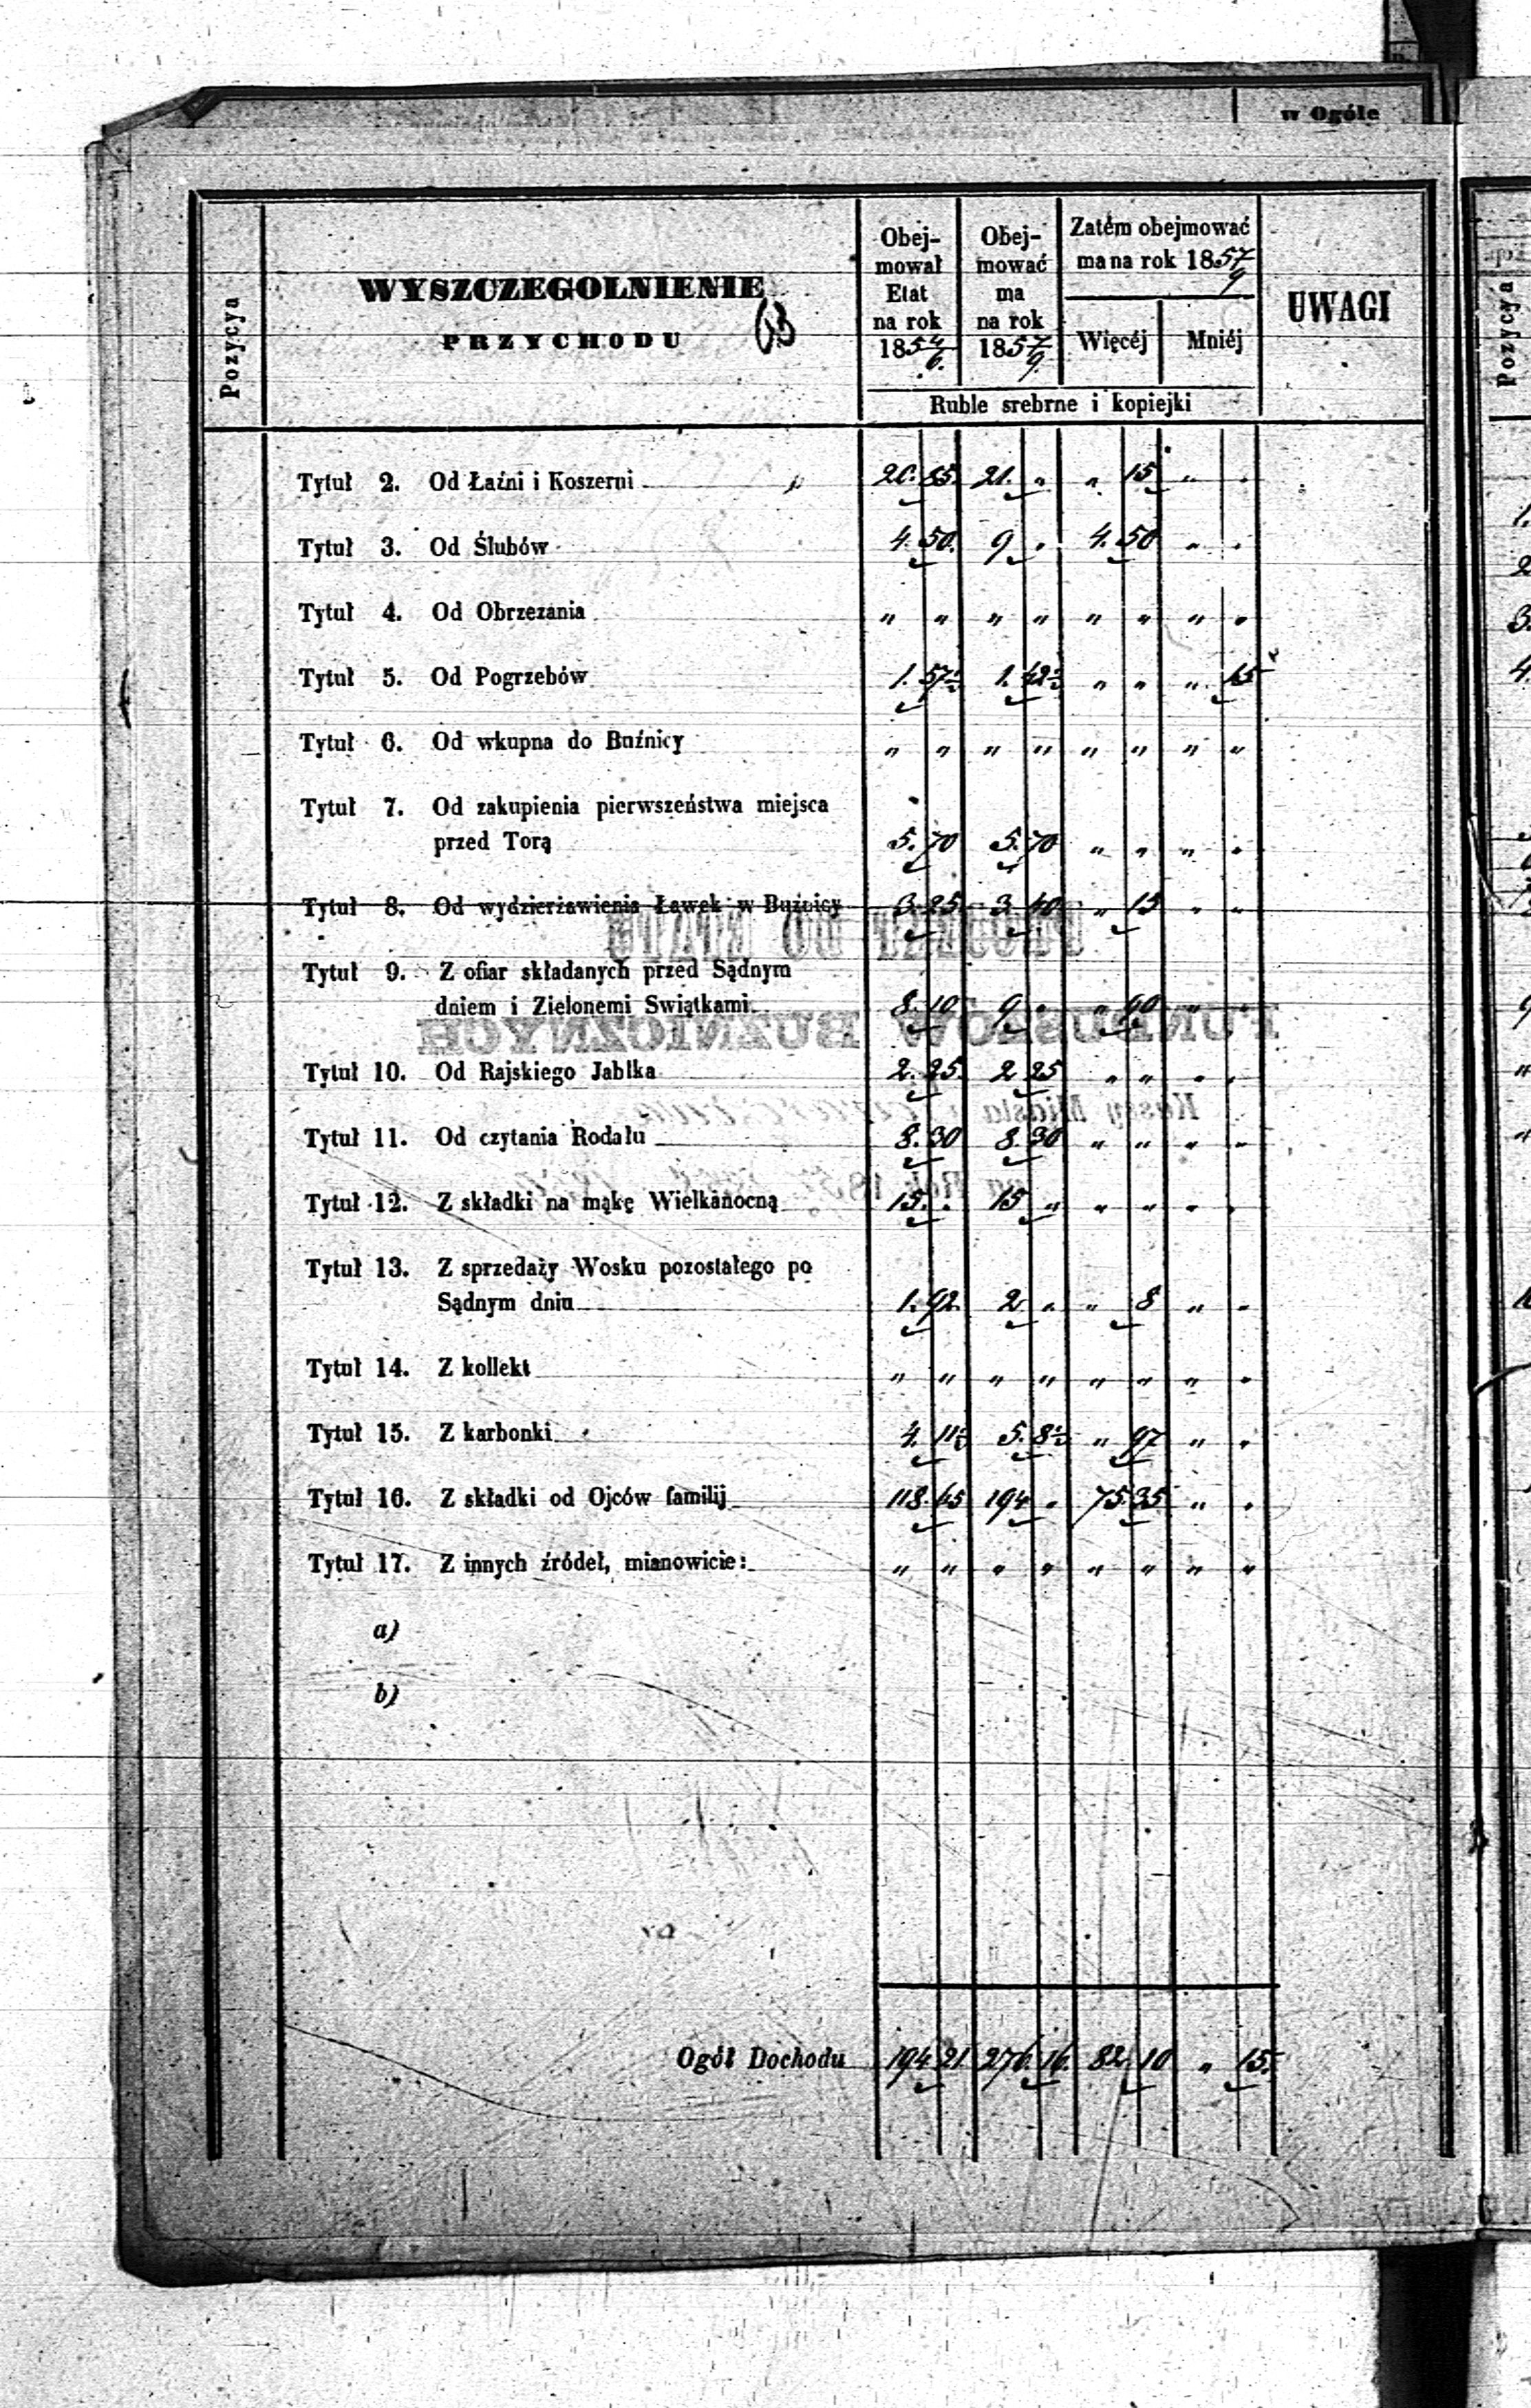 w Ogóle
Pozycya
WYSZCZEGOLNIENIE
PRZYCHODU
63
Obej-
mował
Etat
na rok
1854/6.
Obej-
mować
ma
na rok
1857/9.
Zatém obejmować
ma na rok 1857/9
Więcéj Mniéj
Ruble srebrne i kopiejki
UWAGI
Tytuł 2. Od Łaźni i Koszerni 20. 85. 21. „ „ 15 „ „
Tytuł 3. Od Ślubów 4. 50. 9 „ 4. 50 „ „
Tytuł 4. Od Obrzezania „ „ „ „ „ „ „ „
Tytuł 5. Od Pogrzebów 1. 57½ 1. 42½ „ „ „ 15
Tytuł 6. Od wkupna do Buźnicy „ „ „ „ „ „ „ „
Tytuł 7. Od zakupienia pierwszeństwa miejsca
przed Torą 5. 70 5. 70 „ „ „ „
Tytuł 8. Od wydzierżawienia Ławek w Buźnicy 3. 25. 3. 40 „ 15 „ „
Tytuł 9. Z ofiar składanych przed Sądnym
dniem i Zielonemi Swiątkami 8. 10. 9 „ „ 90 „ „
Tytuł 10. Od Rajskiego Jabłka 2. 25. 2 25 „ „ „ „
Tytuł 11. Od czytania Rodału 8. 30 8. 30 „ „ „ „
Tytuł 12. Z składki na mąkę Wielkanocną 15. „ 15 „ „ „ „ „
Tytuł 13. Z sprzedaży Wosku pozostałego po
Sądnym dniu 1. 92. 2 „ „ 8 „ „
Tytuł 14. Z kollekt „ „ „ „ „ „ „ „
Tytuł 15. Z karbonki 4. 11½ 5. 8½ „ 97 „ „
Tytuł 16. Z składki od Ojców familij 118. 65 194 „ 75 35 „ „
Tytuł 17. Z innych źródeł, mianowicie: „ „ „ „ „ „ „ „
a)
b)
Ogół Dochodu 194 21 276. 16. 82 10 „ 15.
Pozycya